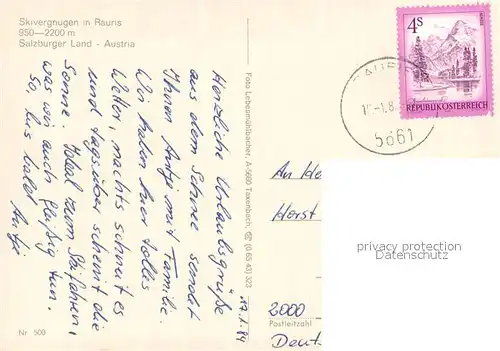 Skivergnügen in Rauris
950—2200 m
Salzburger Land - Austria
Herzliche Urlaubsgrüße
aus dem Schnee sendet
Ihnen Antje mit Familie.
Wir haben hier tolles
Wetter, nachts schneit es
und tagsüber scheint die
Sonne. Ideal zum Skifahren,
was wir auch fleißig tun.
So, bis bald
Antje
17.1.84
Foto Lebesmühlbacher, A-5660 Taxenbach, (0 65 43) 323
Nr 500
4s
REPUBLIK ÖSTERREICH
5661
An
Horst
2000
Postleitzahl
privacy protection
Service